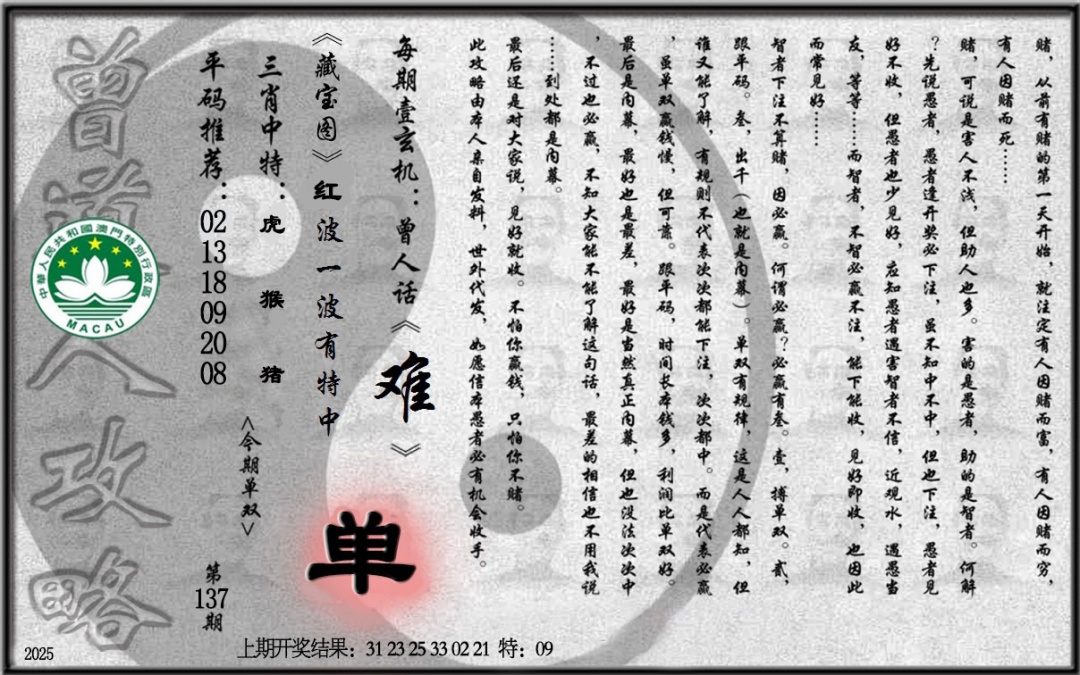 赌，从前有赌的第一天开始，就注定有人因赌而富，有人因赌而穷，
有人因赌而死……
赌，可说是害人不浅，但助人也多。害的是愚者，助的是智者。何解
？先说愚者，愚者逢开奖必下注，虽不知中不中，但也下注，愚者见
好不收，但愚者也少见好，应知愚者遇害智者不信，近观水，遇愚当
友，等等……而智者，不智必赢不注，能下能收，见好即收，也因此
而常见好……
智者下注不算赌，因必赢。何谓必赢？必赢有叁。壹，搏单双。贰，
跟平码。叁，出千（也就是内幕）。单双有规律，这是人人都知，但
谁又能了解，有规则不代表次次都能下注，次次都中。而是代表必赢
，虽单双赢钱慢，但可靠。跟平码，时间长本钱多，利润比单双好。
最后是内幕，最好也是最差，最好是当然真正内幕，但也没法次次中
，不过也必赢，不知大家能不能了解这句话，最差的相信也不用我说
……到处都是内幕。
最后还是对大家说，见好就收。不怕你赢钱，只怕你不赌。
此攻略由本人亲自发料，世外代发，如愿信本愚者必有机会收手。
每期壹玄机：曾人话《难》
《藏宝图》红波一波有特中
三肖中特：虎 猴 猪
平码推荐：02 13 18 09 20 08
<今期单双>
单
第137期
曾道人攻略
中華人民共和國澳門特別行政區
MACAU
上期开奖结果：31 23 25 33 02 21 特：09
2025